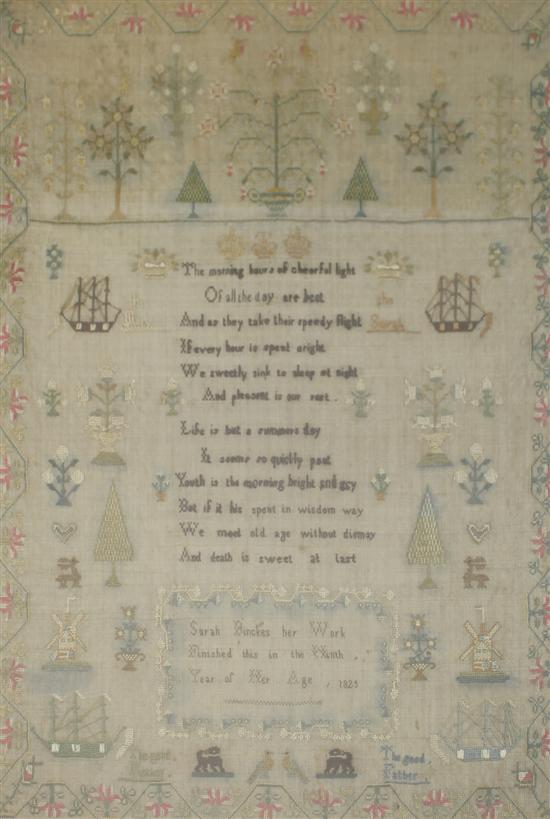 The morning hours of chearful light
Of all the day are best
the
And as they take their speedy flight
Sarah
If every hour is spent aright
We sweetly sink to sleep at night
And pleasent is our rest.
Life is but a summers day
It seems so quickly past
Youth is the morning bright and gay
But if it his spent in wisdom way
We meet old age without dismay
And death is sweet at last
Sarah Binckes her Work
Finished this in the Ninth
Year of Her Age, 1825
The good
The good
Father.